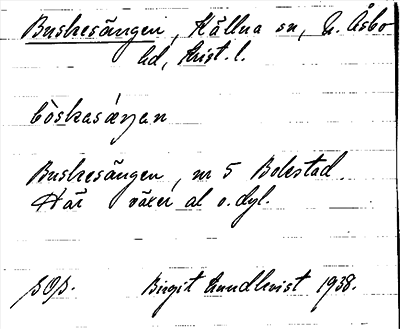 Buskesängen, Källna sn, N. Åsbo
hd, Krist. l.
bòskasæŋan
Buskesängen, nr 5 Bolestad.
Här växer al o. dyl.
sOp. Birgit Lundkvist 1938.